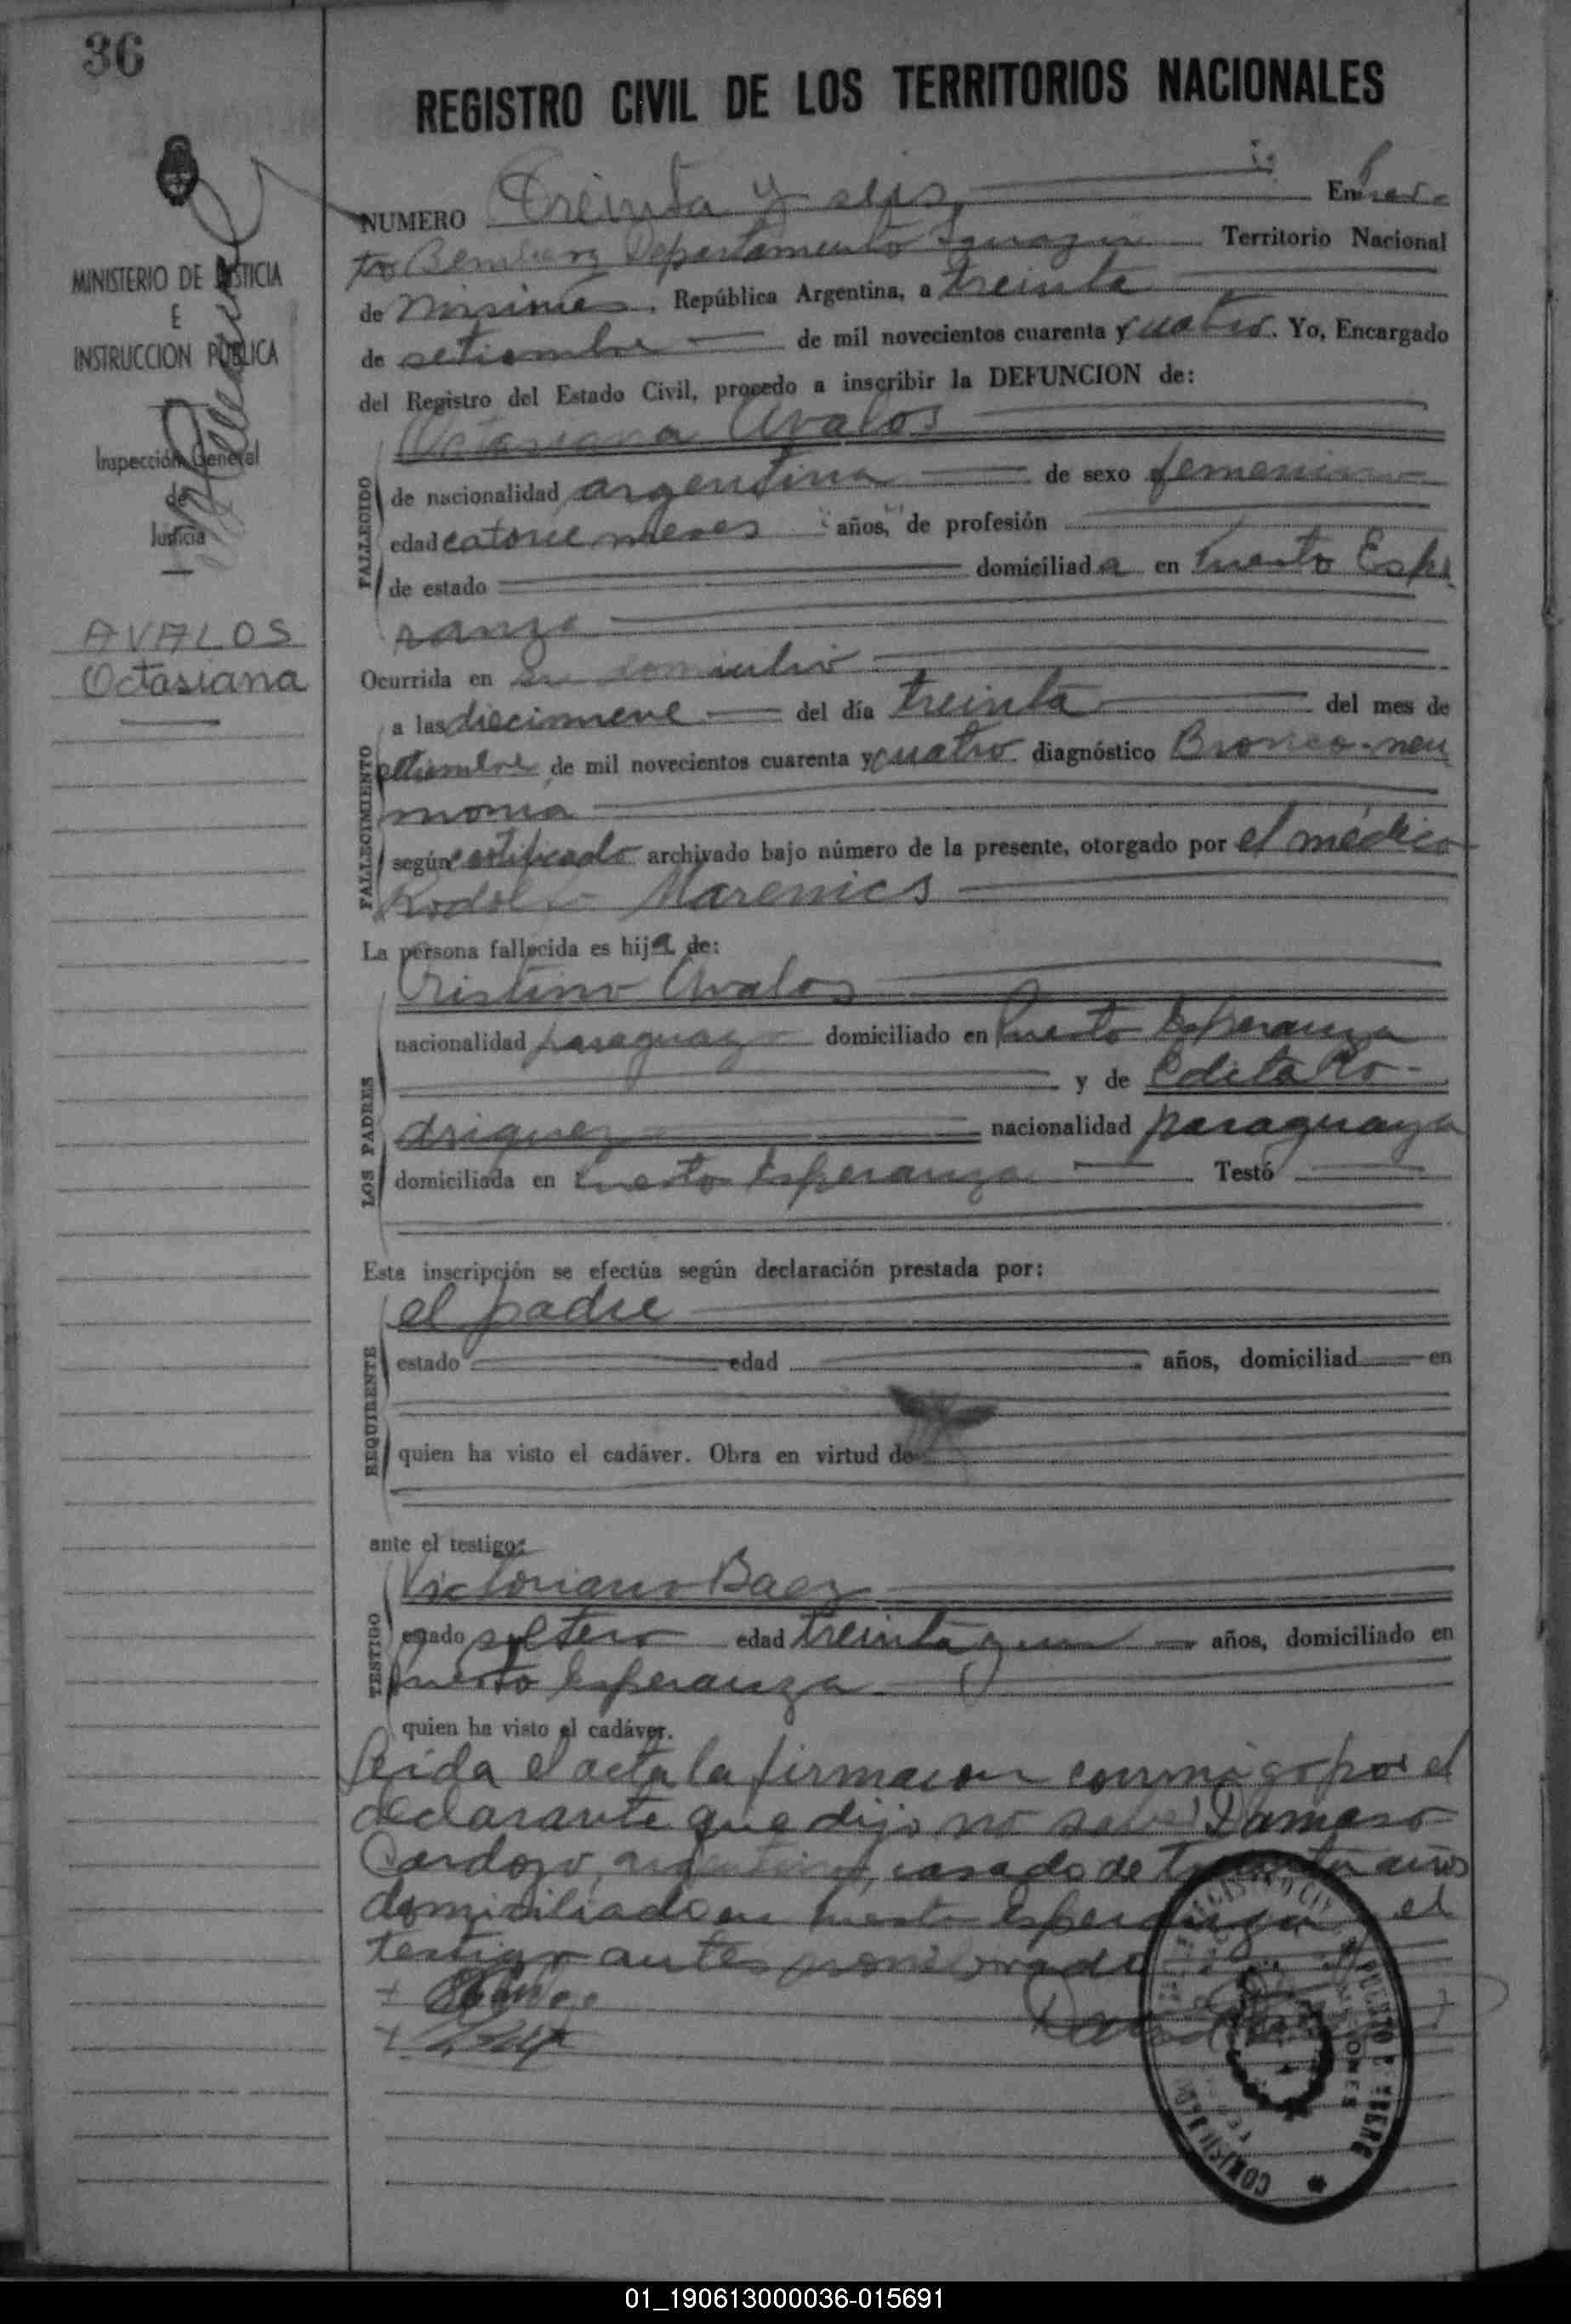 36
REGISTRO CIVIL DE LOS TERRITORIOS NACIONALES
MINISTERIO DE JUSTICIA
E
INSTRUCCION PUBLICA
Inspección General
de
Justicia
AVALOS
Octasiana
NUMERO Treinta y seis En Puer-
to Bemberg Departamento Iguazú Territorio Nacional
de Misiones, República Argentina, a treinta
de setiembre de mil novecientos cuarenta y cuatro. Yo, Encargado
del Registro del Estado Civil, procedo a inscribir la DEFUNCION de:
Octasiana Avalos
FALLECIDO
de nacionalidad argentina de sexo femenino
edad catorce meses "años," de profesión
de estado domiciliada en Puerto Espe
ranza
Ocurrida en su domicilio
FALLECIMIENTO
a las diecinueve del día treinta del mes de
setiembre de mil novecientos cuarenta y cuatro diagnóstico Bronco-neu
monia
según certificado archivado bajo número de la presente, otorgado por el médico
Rodolfo Marenics
La persona fallecida es hija de:
Cristino Avalos
LOS PADRES
nacionalidad paraguayo domiciliado en Puerto Esperanza
y de Edita Ro-
driguez nacionalidad paraguaya
domiciliada en Puerto Esperanza Testó
Esta inscripción se efectúa según declaración prestada por:
el padre
REQUIRENTE
estado edad años, domiciliad en
quien ha visto el cadáver. Obra en virtud de
ante el testigo:
Victoriano Baez
TESTIGO
estado soltero edad treinta y un años, domiciliado en
Puerto Esperanza
quien ha visto el cadáver.
Leida el acta la firmaron conmigo por el
declarante que dijo no saber Damaso
Cardozo, argentino, casado de treinta años
domiciliado en Puerto Esperanza y el
testigo antes mencionado
01_190613000036-015691